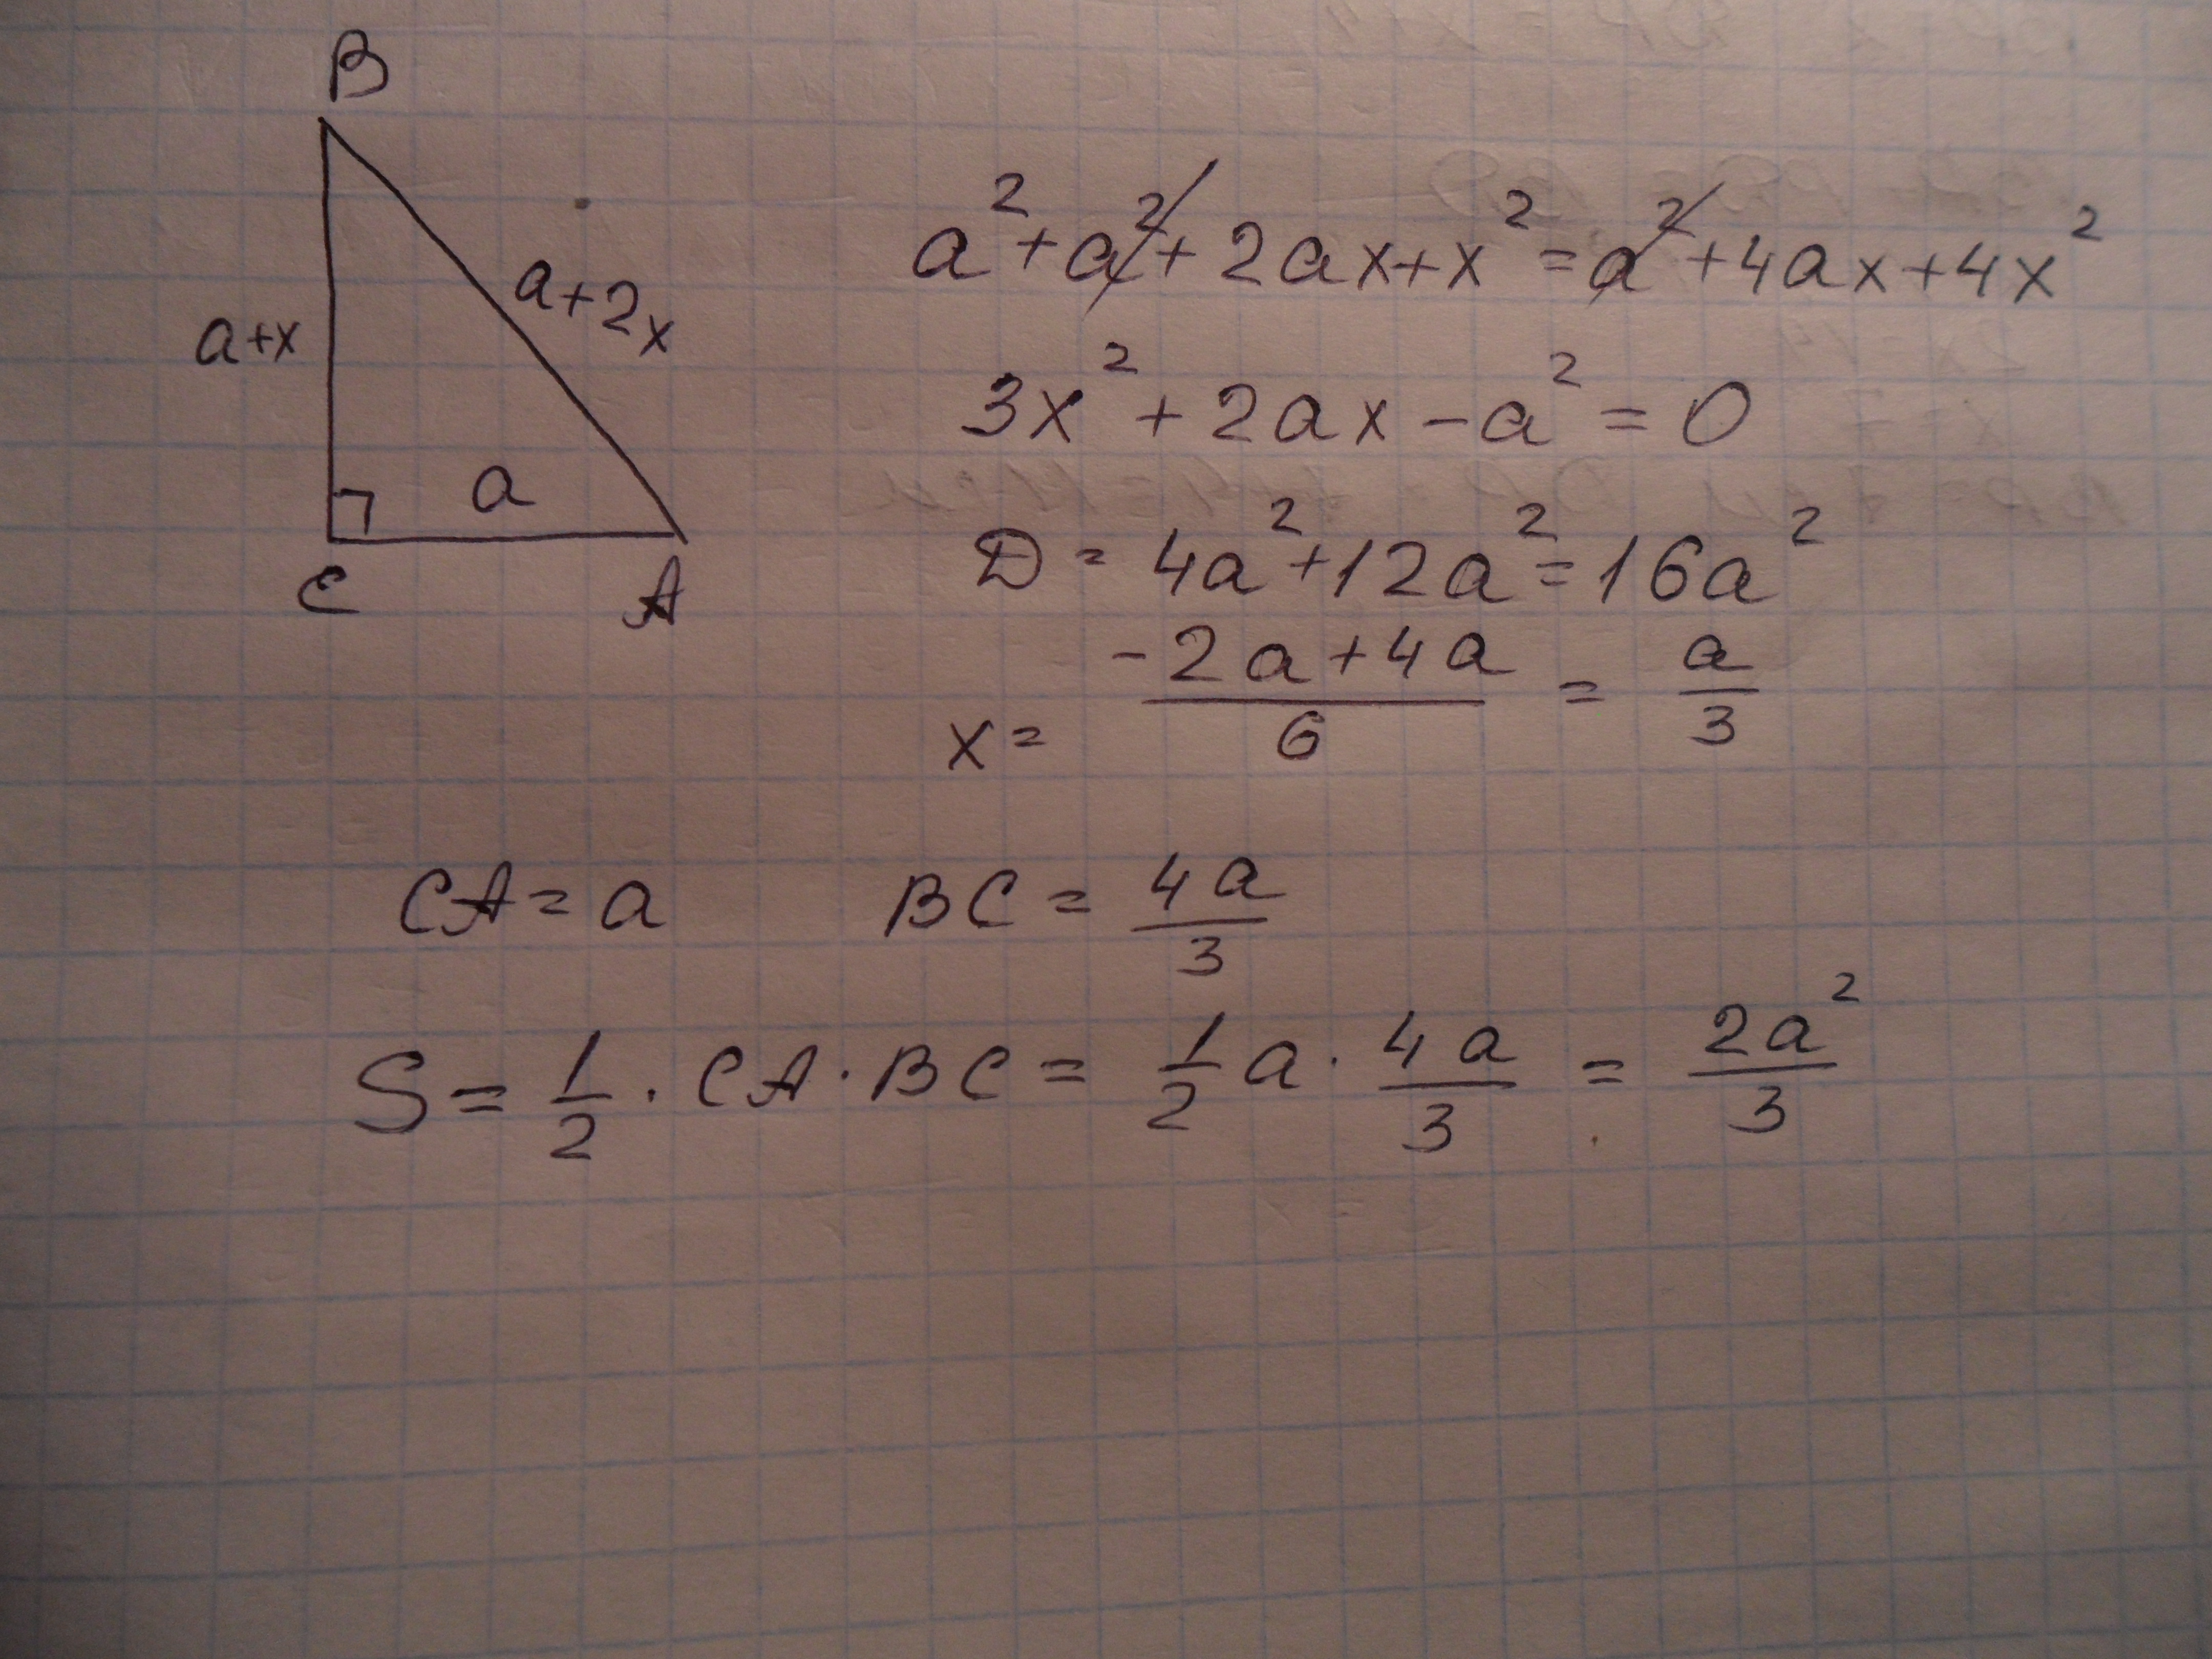 B
a+x
a+2x
a
C
A
a²+a²+2ax+x²=a²+4ax+4x²
3x²+2ax-a²=0
D=4a²+12a²=16a²
x= -2a+4a/6 = a/3
CA=a BC=4a/3
S=1/2·CA·BC=1/2a·4a/3=2a²/3